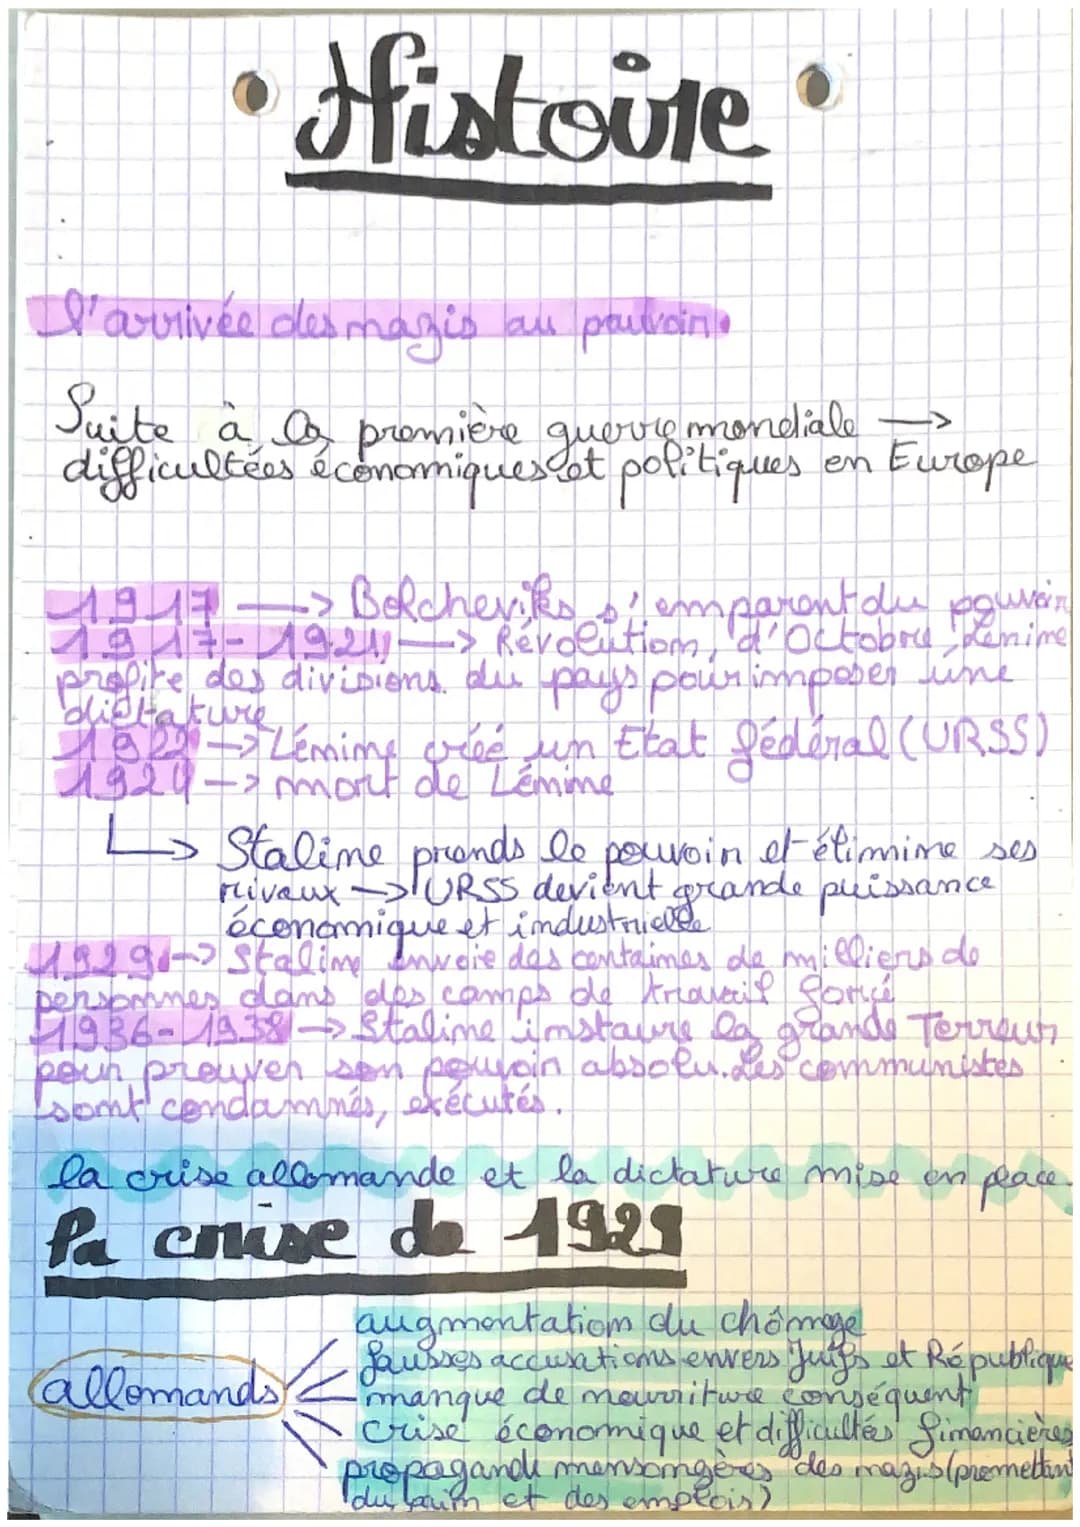 Histoire
l'arrivée des nazis au pouvoir
Suite à la première guerre mondiale →
difficultées économiques et politiques en Europe
1917 → Bolcheviks s'emparent du pouvoir
1917-1921 → Révolution, d'Octobre, Lénine
profite des divisions du pays pour imposer une
dictature
1922 → Lénine créé un Etat fédéral (URSS)
1924 → mort de Lénine
↳ Staline prends le pouvoir et élimine ses
rivaux → URSS devient grande puissance
économique et industrielle
1929 → Staline envoie des centaines de milliers de
personnes dans des camps de travail forcé
1936-1938 → Staline instaure la grande Terreur
pour prouver son pouvoir absolu. Les communistes
sont condamnés, exécutés.
la crise allemande et la dictature mise en place
la crise de 1929
augmentation du chômage
fausses accusations envers Juifs et République
allemands
manque de nourriture conséquent
crise économique et difficultés financières
propagande mensongères des nazis (promettant
du pain et des emplois)